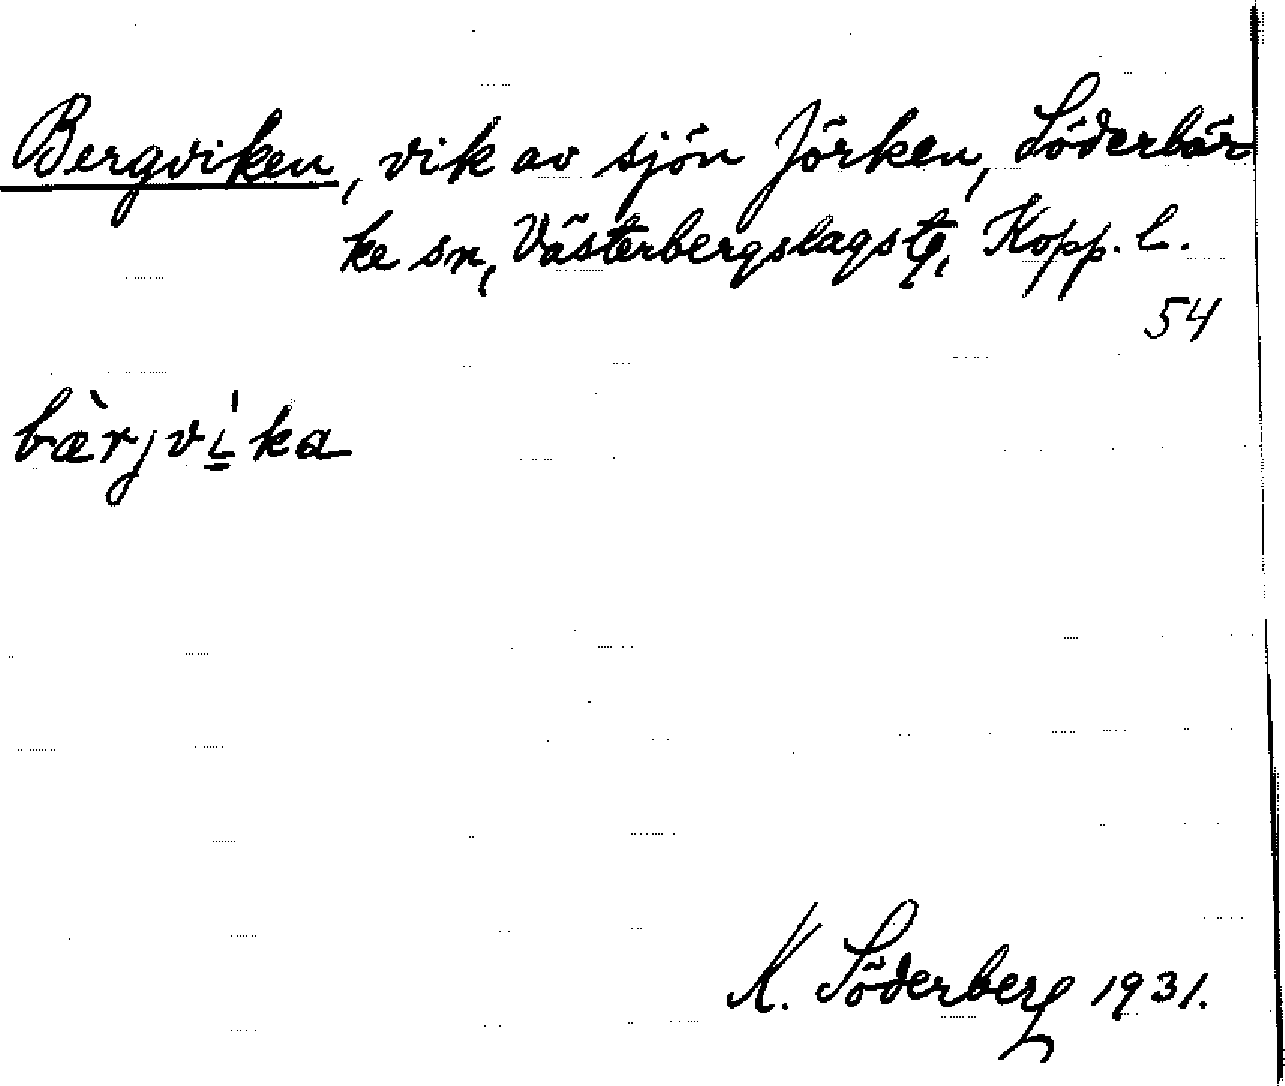 Bergviken, vik av sjön Jörken, Söderbär-
ke sn, Västerbergslags tg, Kopp. l.
54
bæ̀rjvi̱̍ka
K. Söderberg 1931.